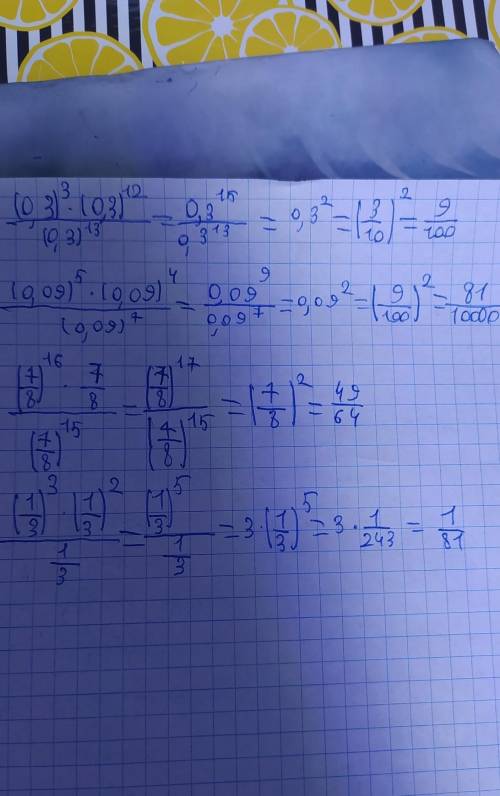 ((0,3)^3 · (0,3)^12)/(0,3)^13 = 0,3^15/0,3^13 = 0,3^2 = (3/10)^2 = 9/100
((0,09)^5 · (0,09)^4)/(0,09)^7 = 0,09^9/0,09^7 = 0,09^2 = (9/100)^2 = 81/10000
((7/8)^16 · 7/8)/(7/8)^15 = (7/8)^17/(7/8)^15 = (7/8)^2 = 49/64
((1/3)^3 · (1/3)^2)/(1/3) = (1/3)^5/(1/3) = 3·(1/3)^5 = 3·1/243 = 1/81